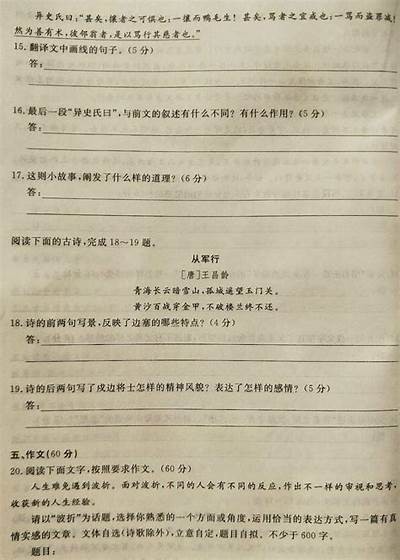 异史氏曰:“甚矣,攘者之可惧也:一攘而鸭毛生!甚矣,骂者之宜戒也:一骂而盗罪减!
然为善有术,彼邻翁者,是以骂行其慈者也。”
15.翻译文中画线的句子。(5分)
答:
16.最后一段“异史氏曰”,与前文的叙述有什么不同?有什么作用?(5分)
答:
17.这则小故事,阐发了什么样的道理?(6分)
答:
阅读下面的古诗,完成18~19题。
从军行
[唐]王昌龄
青海长云暗雪山,孤城遥望玉门关。
黄沙百战穿金甲,不破楼兰终不还。
18.诗的前两句写景,反映了边塞的哪些特点?(4分)
答:
19.诗的后两句写了戍边将士怎样的精神风貌?表达了怎样的感情?(5分)
答:
五、作文(60分)
20.阅读下面文字,按照要求作文。(60分)
人生难免遇到波折。面对波折,不同的人会有不同的反应,作出不一样的审视和思考,
收获新的人生经验。
请以“波折”为话题,选择你熟悉的一个方面或角度,运用恰当的表达方式,写一篇有真
情实感的文章。文体自选(诗歌除外),立意自定,题目自拟。不少于600字。
题目: